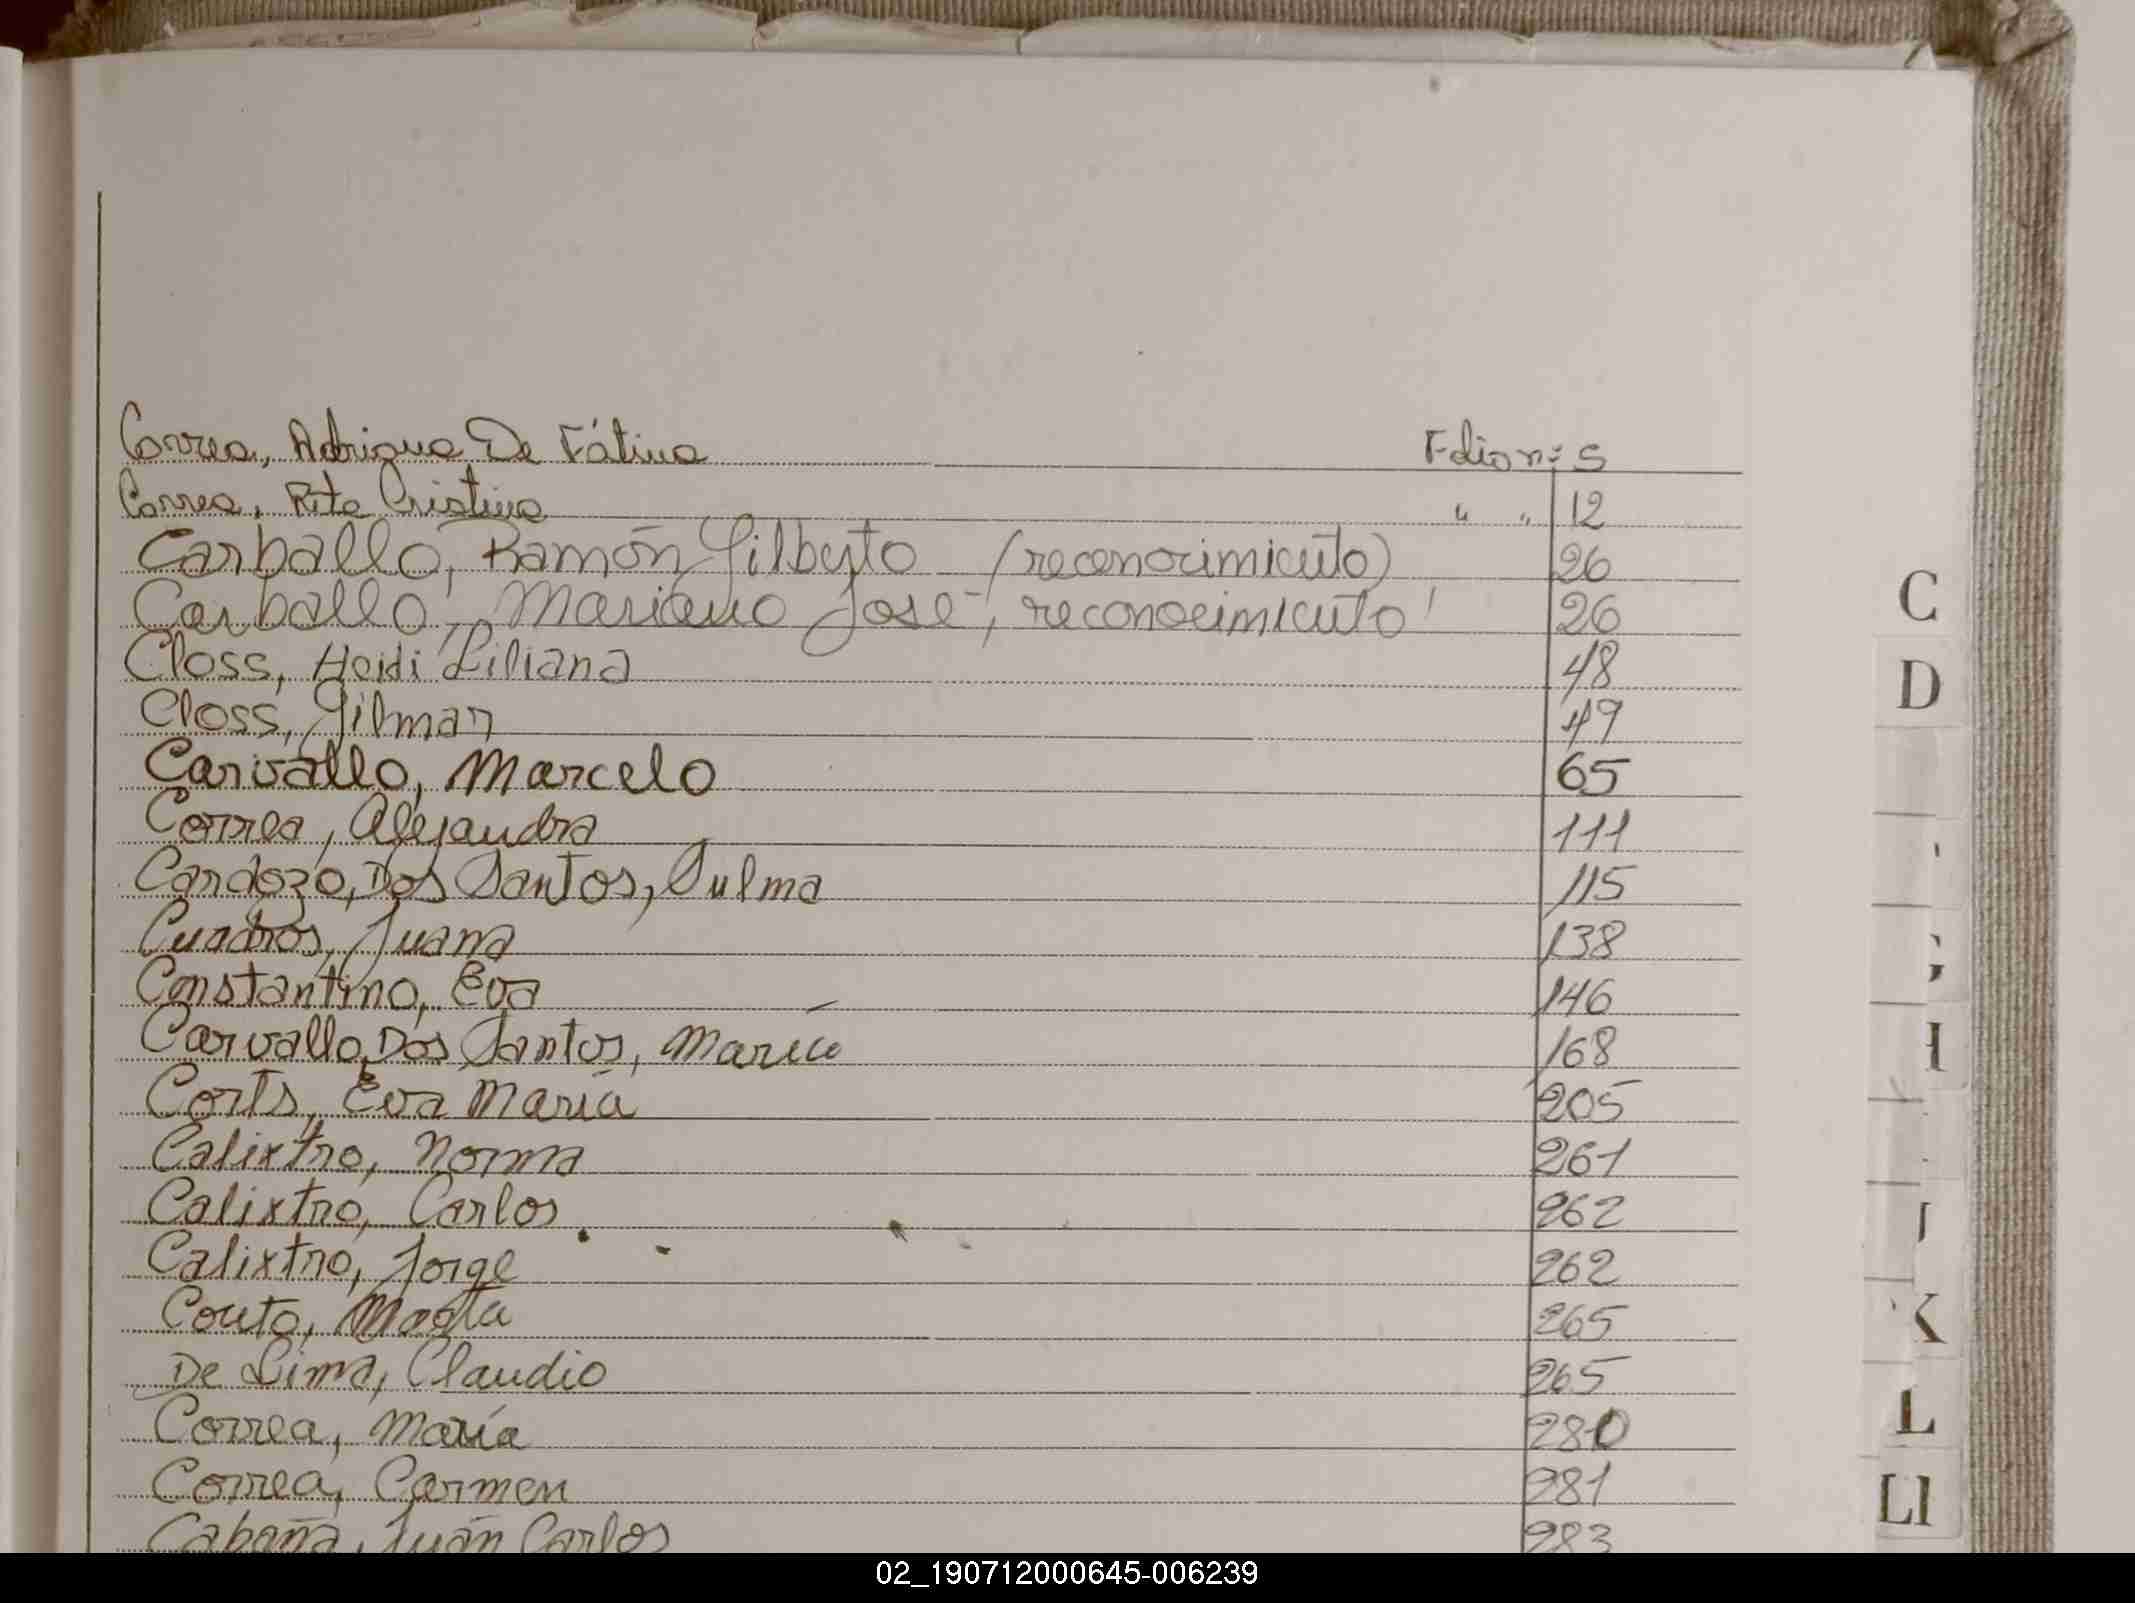 Correa, Adriana De Fátima Folio nº 5
Correa, Rita Cristina " " 12
Carballo, Ramón Gilberto (reconocimiento) 26
Carballo, Mariano José, reconocimiento 26
Closs, Heidi Liliana 48
Closs, Gilmar 49
Carvallo, Marcelo 65
Correa, Alejandra 111
Cardozo, Dos Santos, Sulma 115
Cuadros, Juana 138
Constantino, Eva 146
Carvallo Dos Santos, 168
Corts, Eva María 205
Calixtro, Norma 261
Calixtro, Carlos 262
Calixtro, Jorge 262
Couto, 265
De Lima, Claudio 265
Correa, María 280
Correa, Carmen 281
Cabaña, Juan Carlos 283
C
D
K
L
Ll
02_190712000645-006239